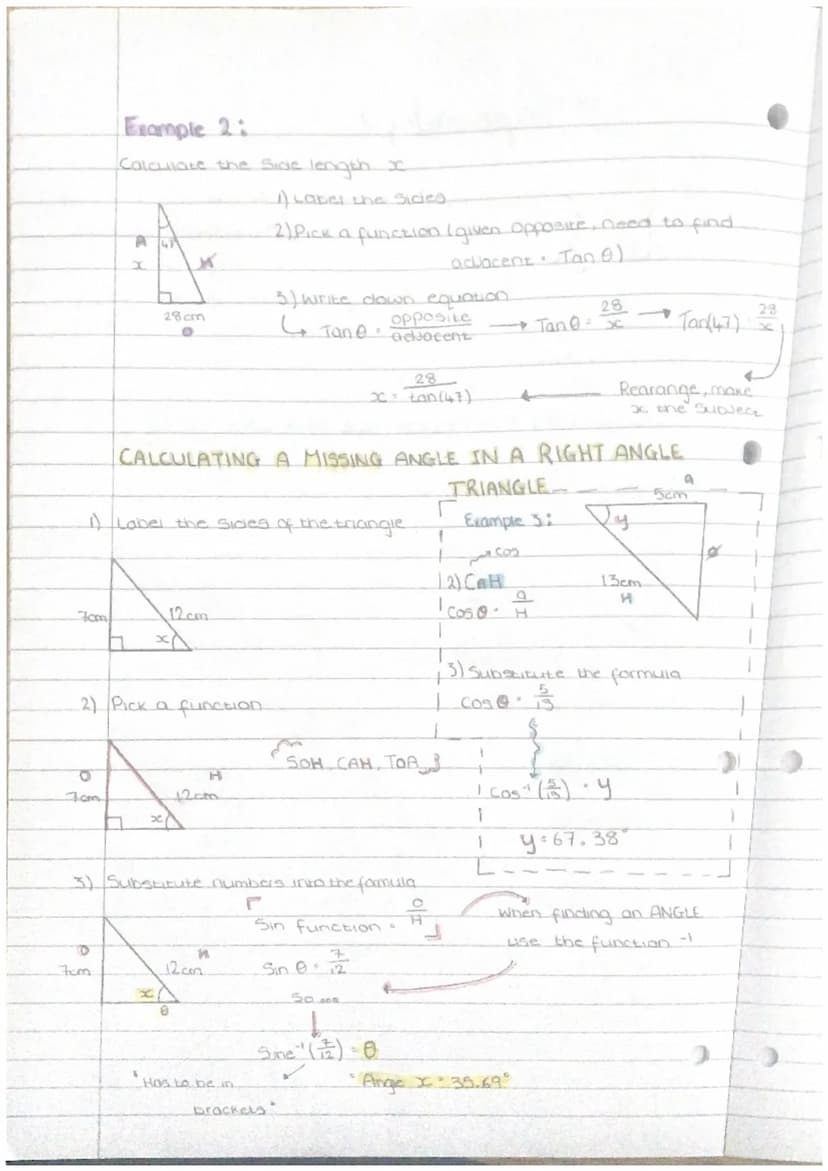 Example 2:
Calculate the side length x
1) Label the sides
2) Pick a function (given opposite, need to find
adjacent = Tan θ)
A
x
47
H
28cm
O
3) Write down equation
↳ Tan θ = opposite/adjacent → Tan θ = 28/x → Tan(47) = 28/x
x = 28/tan(47) ← Rearange, make
x the subject
CALCULATING A MISSING ANGLE IN A RIGHT ANGLE
TRIANGLE
1) Label the sides of the triangle
7cm
12cm
x
Example 3:
a
5cm
y
O
13cm
H
cos
2) CaH
cos θ = a/H
3) Substitute the formula
cos θ = 5/13
cos⁻¹(5/13) = y
y = 67.38°
2) Pick a function
O
7cm
H
12cm
x
SOH, CAH, TOA
3) Substitute numbers into the formula
O
7cm
H
12cm
x
θ
Sin function = O/H
Sin θ = 7/12
So...
Sine⁻¹(7/12) = θ
"Has to be in
brackets"
"Ange x = 35.69°
When finding an ANGLE
use the function -1